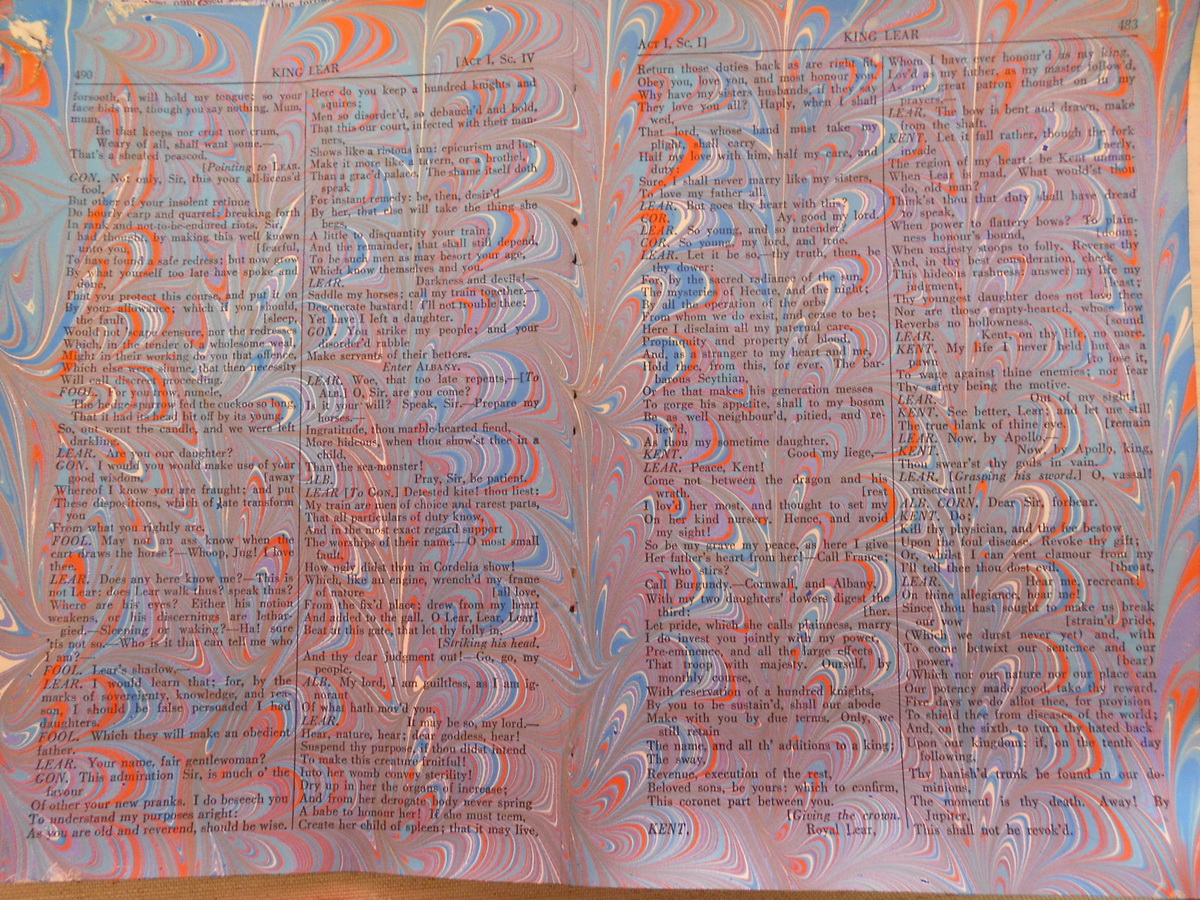 490
KING LEAR
[Act I, Sc. IV
forsooth, I will hold my tongue; so your
face bids me, though you say nothing. Mum,
mum,
He that keeps nor crust nor crum,
Weary of all, shall want some.—
That's a sheated peascod.
[Pointing to LEAR.
GON. Not only, Sir, this your all-licens'd
fool,
But other of your insolent retinue
Do hourly carp and quarrel; breaking forth
In rank and not-to-be-endured riots, Sir,
I had thought, by making this well known
unto you, [fearful,
To have found a safe redress; but now grow
By what yourself too late have spoke and
done,
That you protect this course, and put it on
By your allowance; which if you should,
the fault [sleep,
Would not 'scape censure, nor the redresses
Which, in the tender of a wholesome weal,
Might in their working do you that offence,
Which else were shame, that then necessity
Will call discreet proceeding.
FOOL. For you trow, nuncle,
The hedge-sparrow fed the cuckoo so long,
That it had its head bit off by its young.
So, out went the candle, and we were left
darkling.
LEAR. Are you our daughter?
GON. I would you would make use of your
good wisdom, [away
Whereof I know you are fraught; and put
These dispositions, which of late transform
you
From what you rightly are.
FOOL. May not an ass know when the
cart draws the horse?—Whoop, Jug! I love
thee.
LEAR. Does any here know me?—This is
not Lear: does Lear walk thus? speak thus?
Where are his eyes? Either his notion
weakens, his discernings are lethar-
gied.—Sleeping or waking?—Ha! sure
'tis not so.—Who is it that can tell me who
I am?—
FOOL. Lear's shadow.—
LEAR. I would learn that; for, by the
marks of sovereignty, knowledge, and rea-
son, I should be false persuaded I had
daughters.
FOOL. Which they will make an obedient
father.
LEAR. Your name, fair gentlewoman?
GON. This admiration, Sir, is much o' the
favour
Of other your new pranks. I do beseech you
To understand my purposes aright:
As you are old and reverend, should be wise.
Here do you keep a hundred knights and
squires;
Men so disorder'd, so debauch'd and bold,
That this our court, infected with their man-
ners,
Shows like a riotous inn: epicurism and lust
Make it more like a tavern, or a brothel,
Than a grac'd palace. The shame itself doth
speak
For instant remedy: be, then, desir'd
By her, that else will take the thing she
begs,
A little to disquantity your train;
And the remainder, that shall still depend,
To be such men as may besort your age,
Which know themselves and you.
LEAR. Darkness and devils!—
Saddle my horses; call my train together.—
Degenerate bastard! I'll not trouble thee:
Yet have I left a daughter.
GON. You strike my people; and your
disorder'd rabble
Make servants of their betters.
Enter ALBANY.
LEAR. Woe, that too late repents,—[To
ALB.] O, Sir, are you come?
Is it your will? Speak, Sir.—Prepare my
horses.—
Ingratitude, thou marble-hearted fiend,
More hideous, when thou show'st thee in a
child,
Than the sea-monster!
ALB. Pray, Sir, be patient.
LEAR [To GON.] Detested kite! thou liest:
My train are men of choice and rarest parts,
That all particulars of duty know,
And in the most exact regard support
The worships of their name.—O most small
fault,
How ugly didst thou in Cordelia show!
Which, like an engine, wrench'd my frame
of nature [all love,
From the fix'd place; drew from my heart
And added to the gall. O Lear, Lear, Lear!
Beat at this gate, that let thy folly in,
[Striking his head.
And thy dear judgment out!—Go, go, my
people.
ALB. My lord, I am guiltless, as I am ig-
norant
Of what hath mov'd you.
LEAR. It may be so, my lord.—
Hear, nature, hear; dear goddess, hear!
Suspend thy purpose, if thou didst intend
To make this creature fruitful!
Into her womb convey sterility!
Dry up in her the organs of increase;
And from her derogate body never spring
A babe to honour her! If she must teem,
Create her child of spleen; that it may live,
Act I, Sc. I]
KING LEAR
483
Return those duties back as are right fit,
Obey you, love you, and most honour you.
Why have my sisters husbands, if they say
They love you all? Haply, when I shall
wed,
That lord, whose hand must take my
plight, shall carry
Half my love with him, half my care, and
duty:
Sure, I shall never marry like my sisters,
To love my father all.
LEAR. But goes thy heart with this?
COR. Ay, good my lord.
LEAR. So young, and so untender?
COR. So young, my lord, and true.
LEAR. Let it be so,—thy truth, then, be
thy dower:
For, by the sacred radiance of the sun,
The mysteries of Hecate, and the night;
By all the operation of the orbs
From whom we do exist, and cease to be;
Here I disclaim all my paternal care,
Propinquity and property of blood,
And, as a stranger to my heart and me,
Hold thee, from this, for ever. The bar-
barous Scythian,
Or he that makes his generation messes
To gorge his appetite, shall to my bosom
Be as well neighbour'd, pitied, and re-
liev'd,
As thou my sometime daughter.
KENT. Good my liege,—
LEAR. Peace, Kent!
Come not between the dragon and his
wrath. [rest
I lov'd her most, and thought to set my
On her kind nursery. Hence, and avoid
my sight!
So be my grave my peace, as here I give
Her father's heart from her!—Call France;
—who stirs?
Call Burgundy.—Cornwall, and Albany,
With my two daughters' dowers digest the
third: [her.
Let pride, which she calls plainness, marry
I do invest you jointly with my power,
Pre-eminence, and all the large effects
That troop with majesty. Ourself, by
monthly course,
With reservation of a hundred knights,
By you to be sustain'd, shall our abode
Make with you by due terms. Only, we
still retain
The name, and all th' additions to a king;
The sway,
Revenue, execution of the rest,
Beloved sons, be yours: which to confirm,
This coronet part between you.
[Giving the crown.
KENT. Royal Lear,
Whom I have ever honour'd as my king,
Lov'd as my father, as my master follow'd,
As my great patron thought on in my
prayers,—
LEAR. The bow is bent and drawn, make
from the shaft.
KENT. Let it fall rather, though the fork
invade [nerly,
The region of my heart: be Kent unman-
When Lear is mad. What would'st thou
do, old man?
Think'st thou that duty shall have dread
to speak,
When power to flattery bows? To plain-
ness honour's bound, [doom;
When majesty stoops to folly. Reverse thy
And, in thy best consideration, check
This hideous rashness: answer my life my
judgment, [least;
Thy youngest daughter does not love thee
Nor are those empty-hearted whose low
Reverbs no hollowness. [sound
LEAR. Kent, on thy life, no more.
KENT. My life I never held but as a
pawn [to lose it,
To wage against thine enemies; nor fear
Thy safety being the motive.
LEAR. Out of my sight!
KENT. See better, Lear; and let me still
The true blank of thine eye. [remain
LEAR. Now, by Apollo,—
KENT. Now, by Apollo, king,
Thou swear'st thy gods in vain.
LEAR. [Grasping his sword.] O, vassal!
miscreant!
ALB. CORN. Dear Sir, forbear.
KENT. Do;
Kill thy physician, and the fee bestow
Upon the foul disease. Revoke thy gift;
Or, whilst I can vent clamour from my
I'll tell thee thou dost evil. [throat,
LEAR. Hear me, recreant!
On thine allegiance, hear me!
Since thou hast sought to make us break
our vow [strain'd pride,
(Which we durst never yet) and, with
To come betwixt our sentence and our
power, [bear)
(Which nor our nature nor our place can
Our potency made good, take thy reward.
Five days we do allot thee, for provision
To shield thee from diseases of the world;
And, on the sixth, to turn thy hated back
Upon our kingdom: if, on the tenth day
following,
Thy banish'd trunk be found in our do-
minions,
The moment is thy death. Away! By
Jupiter,
This shall not be revok'd.